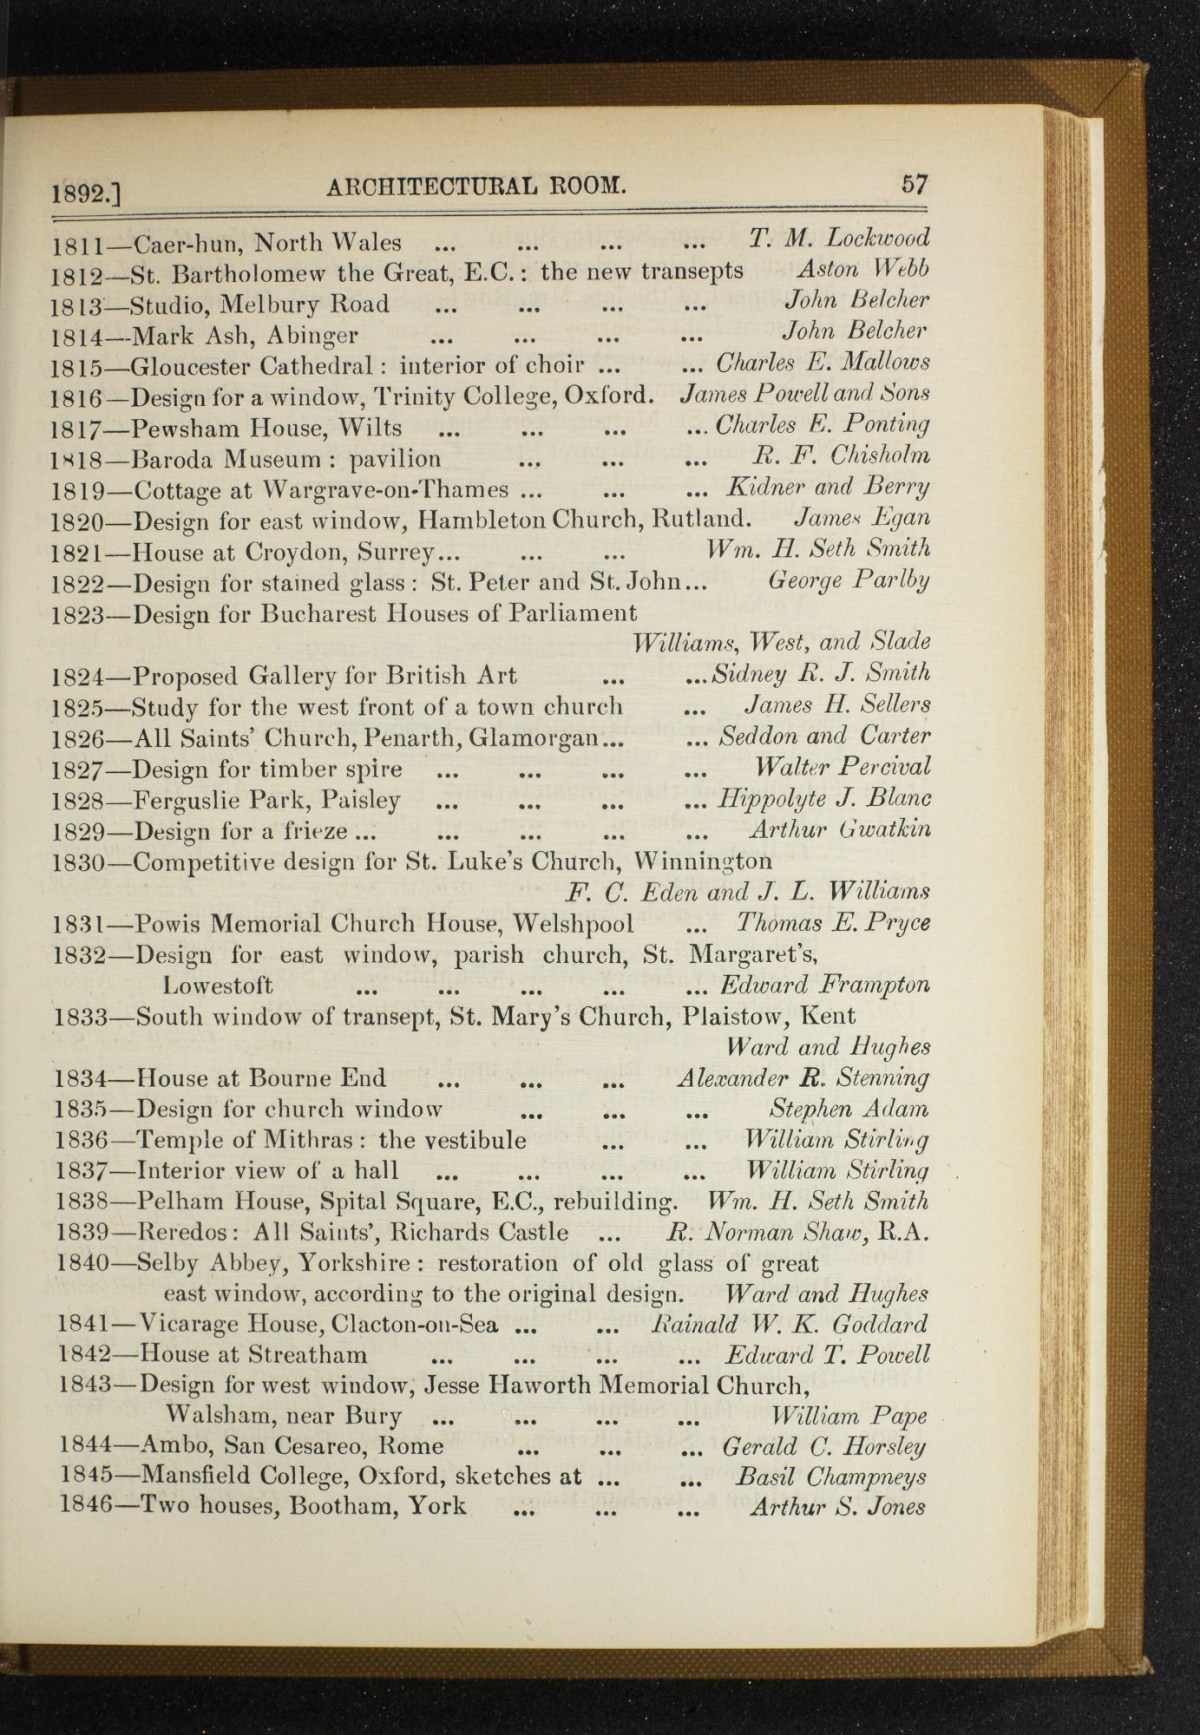 1892.] ARCHITECTURAL ROOM. 57
1811—Caer-hun, North Wales ... ... ... ... T. M. Lockwood
1812—St. Bartholomew the Great, E.C.: the new transepts Aston Webb
1813—Studio, Melbury Road ... ... ... ... John Belcher
1814—Mark Ash, Abinger ... ... ... ... John Belcher
1815—Gloucester Cathedral: interior of choir ... ... Charles E. Mallows
1816—Design for a window, Trinity College, Oxford. James Powell and Sons
1817—Pewsham House, Wilts ... ... ... ... Charles E. Ponting
1818—Baroda Museum: pavilion ... ... ... R. F. Chisholm
1819—Cottage at Wargrave-on-Thames ... ... ... Kidner and Berry
1820—Design for east window, Hambleton Church, Rutland. James Egan
1821—House at Croydon, Surrey... ... ... Wm. H. Seth Smith
1822—Design for stained glass: St. Peter and St. John... George Parlby
1823—Design for Bucharest Houses of Parliament
Williams, West, and Slade
1824—Proposed Gallery for British Art ... ... Sidney R. J. Smith
1825—Study for the west front of a town church ... James H. Sellers
1826—All Saints' Church, Penarth, Glamorgan... ... Seddon and Carter
1827—Design for timber spire ... ... ... ... Walter Percival
1828—Ferguslie Park, Paisley ... ... ... ... Hippolyte J. Blanc
1829—Design for a frieze ... ... ... ... ... Arthur Gwatkin
1830—Competitive design for St. Luke's Church, Winnington
F. C. Eden and J. L. Williams
1831—Powis Memorial Church House, Welshpool ... Thomas E. Pryce
1832—Design for east window, parish church, St. Margaret's,
Lowestoft ... ... ... ... ... Edward Frampton
1833—South window of transept, St. Mary's Church, Plaistow, Kent
Ward and Hughes
1834—House at Bourne End ... ... ... Alexander R. Stenning
1835—Design for church window ... ... ... Stephen Adam
1836—Temple of Mithras: the vestibule ... ... William Stirling
1837—Interior view of a hall ... ... ... ... William Stirling
1838—Pelham House, Spital Square, E.C., rebuilding. Wm. H. Seth Smith
1839—Reredos: All Saints', Richards Castle ... R. Norman Shaw, R.A.
1840—Selby Abbey, Yorkshire: restoration of old glass of great
east window, according to the original design. Ward and Hughes
1841—Vicarage House, Clacton-on-Sea ... ... Rainald W. K. Goddard
1842—House at Streatham ... ... ... ... Edward T. Powell
1843—Design for west window, Jesse Haworth Memorial Church,
Walsham, near Bury ... ... ... ... William Pape
1844—Ambo, San Cesareo, Rome ... ... ... Gerald C. Horsley
1845—Mansfield College, Oxford, sketches at ... ... Basil Champneys
1846—Two houses, Bootham, York ... ... ... Arthur S. Jones